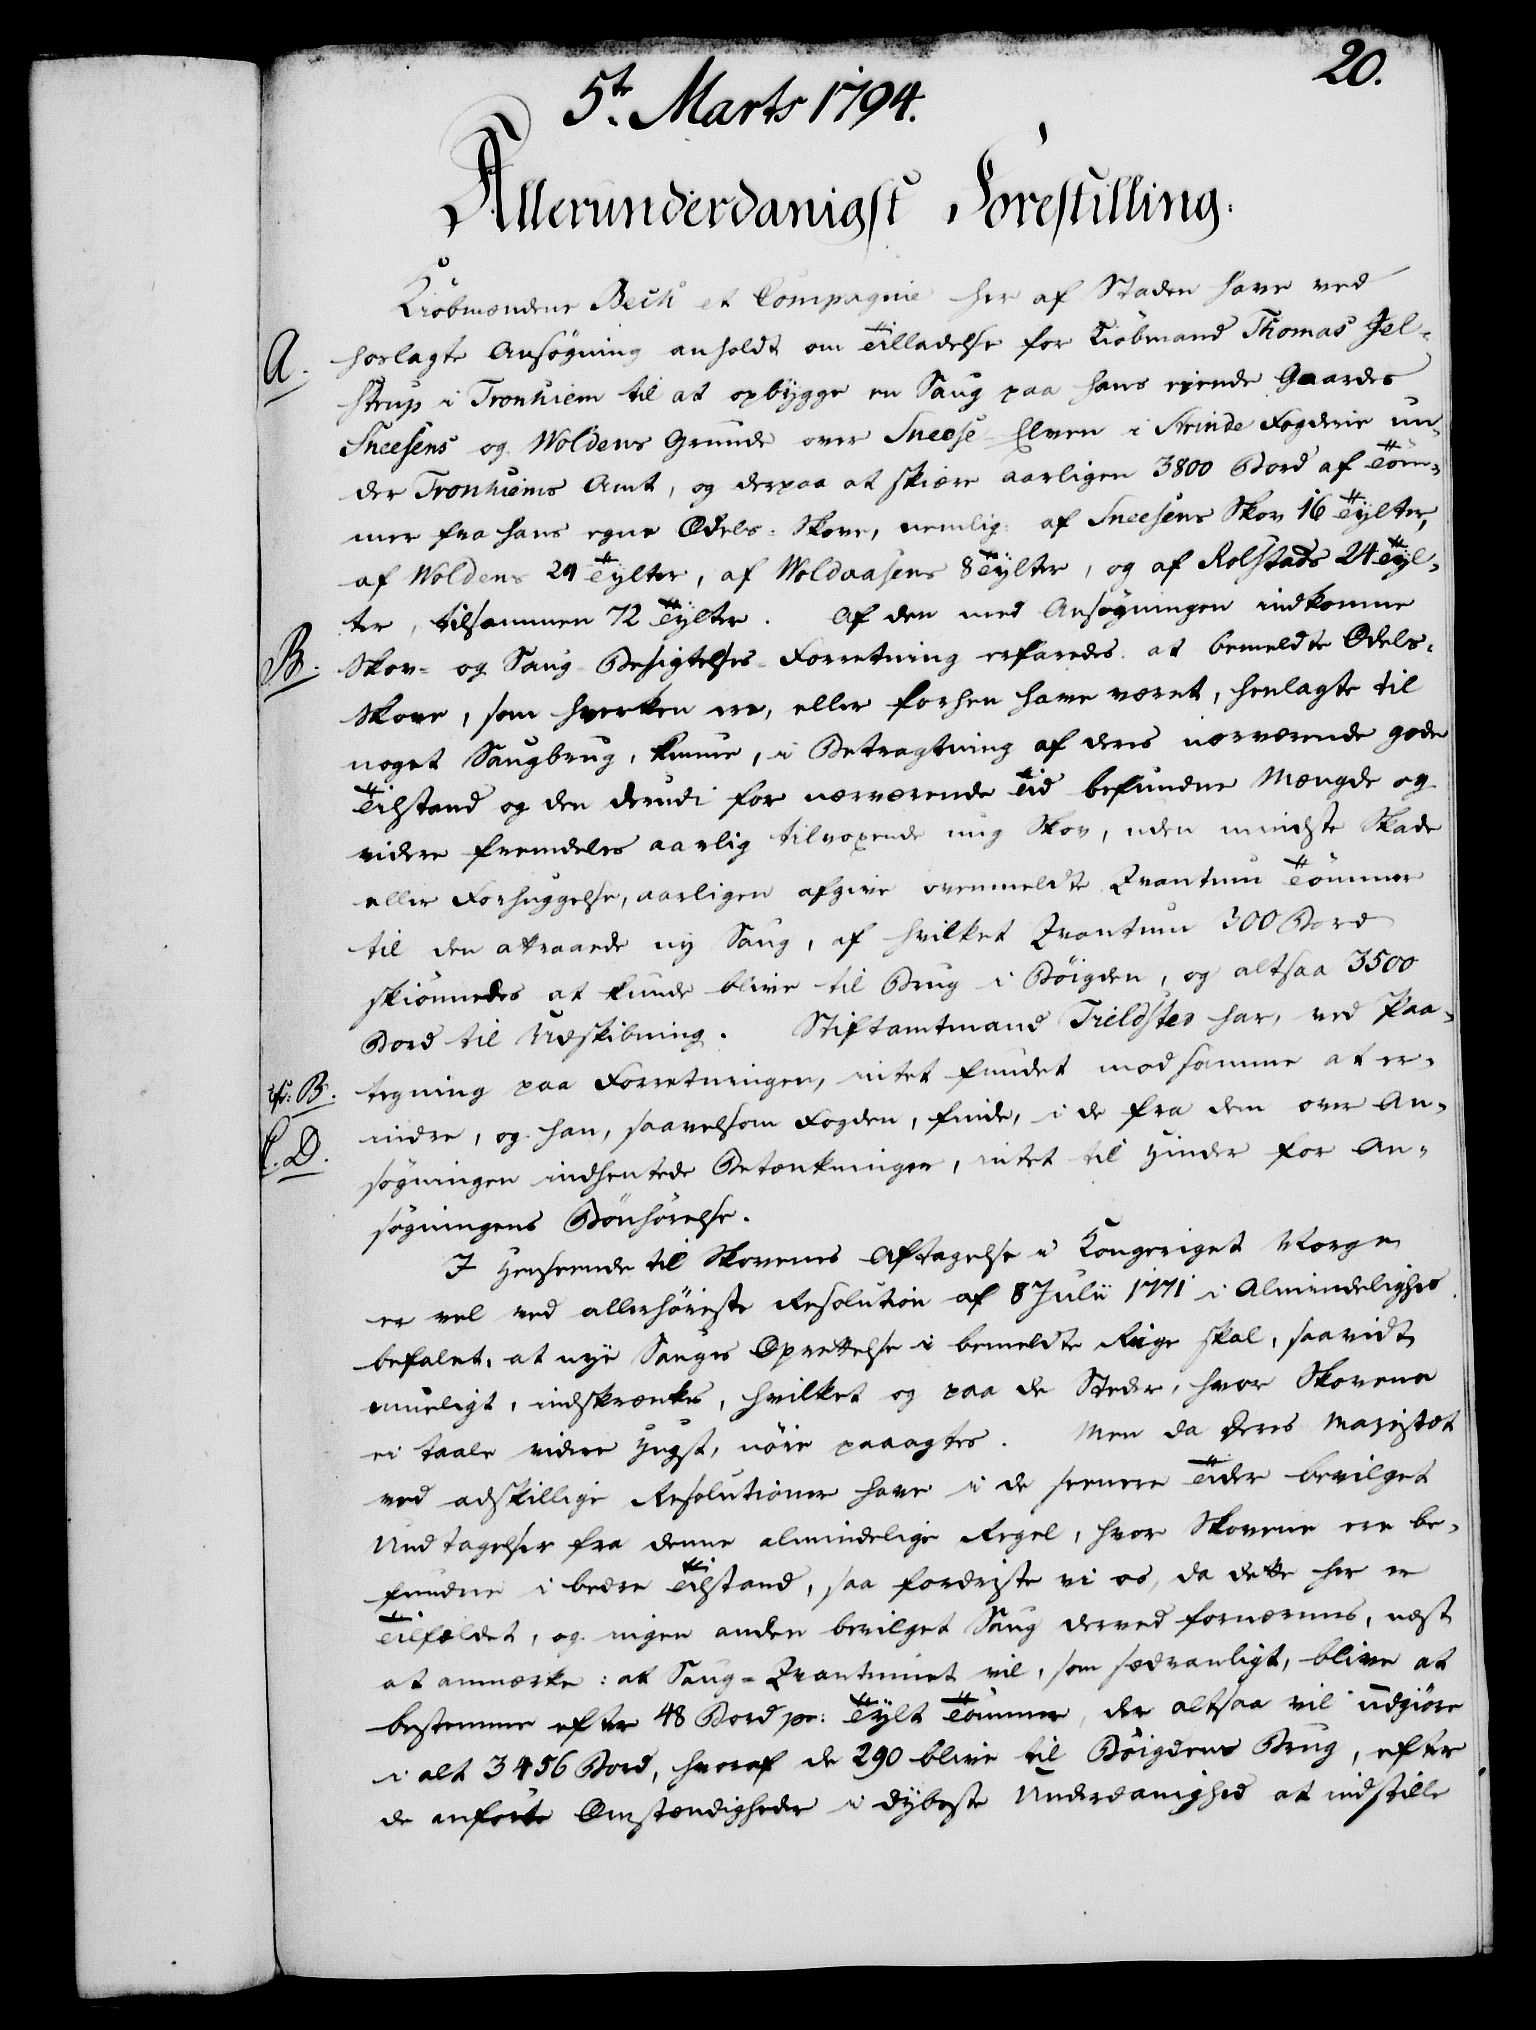 20.
5te Marts 1794.
Allerunderdanigst Forestilling.
Kiöbmændene Bech et Compagnie her af Staden have ved
A. hoslagte Ansøgning anholdt om Tilladelse for Kiöbmand Thomas Jel-
strup i Tronhiem til at opbygge en Saug paa hans eiende Gaardes
Sneesens og Woldens Grunde over Sneese-Elven i Strinde Fogderie un-
der Tronhiems Amt, og derpaa at skiære aarligen 3800 Bord af Töm-
mer fra hans egne Odels-Skove, nemlig: af Sneesens Skov 16 Tylter,
af Woldens 24 Tylter, af Woldaasens 8 Tylter, og af Rolstads 24 Tyl-
ter, tilsammen 72 Tylter. Af den med Ansøgningen indkomne
B. Skov- og Saug-Besigtelses-Forretning erfaredes: at bemeldte Odels-
Skove, som hverken ere, eller forhen have været, henlagte til
noget Saugbrug, kunne, i Betragtning af deres nærværende gode
Tilstand og den derudi for nærværende Tid befundne Mængde og
videre fremdeles aarlig tilvoxende ung Skov, uden mindste Skade
eller Forhuggelse, aarligen afgive ovenmeldte Qvantum Tömmer
til den attraaede ny Saug, af hvilket Qvantum 300 Bord
skiönnedes at kunde blive til Brug i Böigden, og altsaa 3500
Bord til Udskibning. Stiftamtmand Trildsted har, ved Paa-
cfr: B. tegning paa Forretningen, intet fundet mod samme at er-
C. D. indre, og han, saavelsom Fogden, finde, i de fra dem over An-
søgningen indhentede Betænkninger, intet til Hinder for An-
søgningens Bönhörelse.
I Henseende til Skovenes Aftagelse i Kongeriget Norge
er vel ved allerhöieste Resolution af 8 Julii 1771 i Almindelighed
befalet, at nye Sauges Oprettelse i bemeldte Rige skal, saavidt
mueligt, indskrænkes, hvilket og paa de Steder, hvor Skovene
ei taale videre Hugst, nöie paaagtes. Men da Deres Majestæt
ved adskillige Resolutioner have i de seenere Tider bevilget
Undtagelser fra denne almindelige Regel, hvor Skovene ere be-
fundne i bedre Tilstand, saa fordriste vi os, da dette her er
Tilfældet, og ingen anden bevilget Saug derved fornærmes, næst
at anmærke: at Saug-Qvantumet vil, som sædvanligt, blive at
bestemme efter 48 Bord pr: Tylt Tömmer, der altsaa vil udgiöre
i alt 3456 Bord, hvoraf de 290 blive til Böigdens Brug, efter
de anförte Omstændigheder i dybeste Underdanighed at indstille